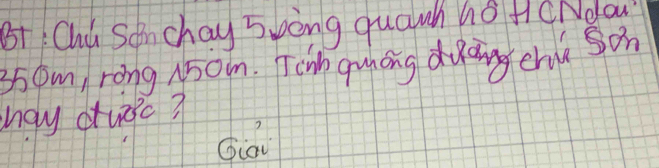 BT: Chú Sơn chạy 5 vòng quanh hồ HCN dài
350m, rộng 150m. Tính quãng đường chú Sơn
hạy được?
Giải